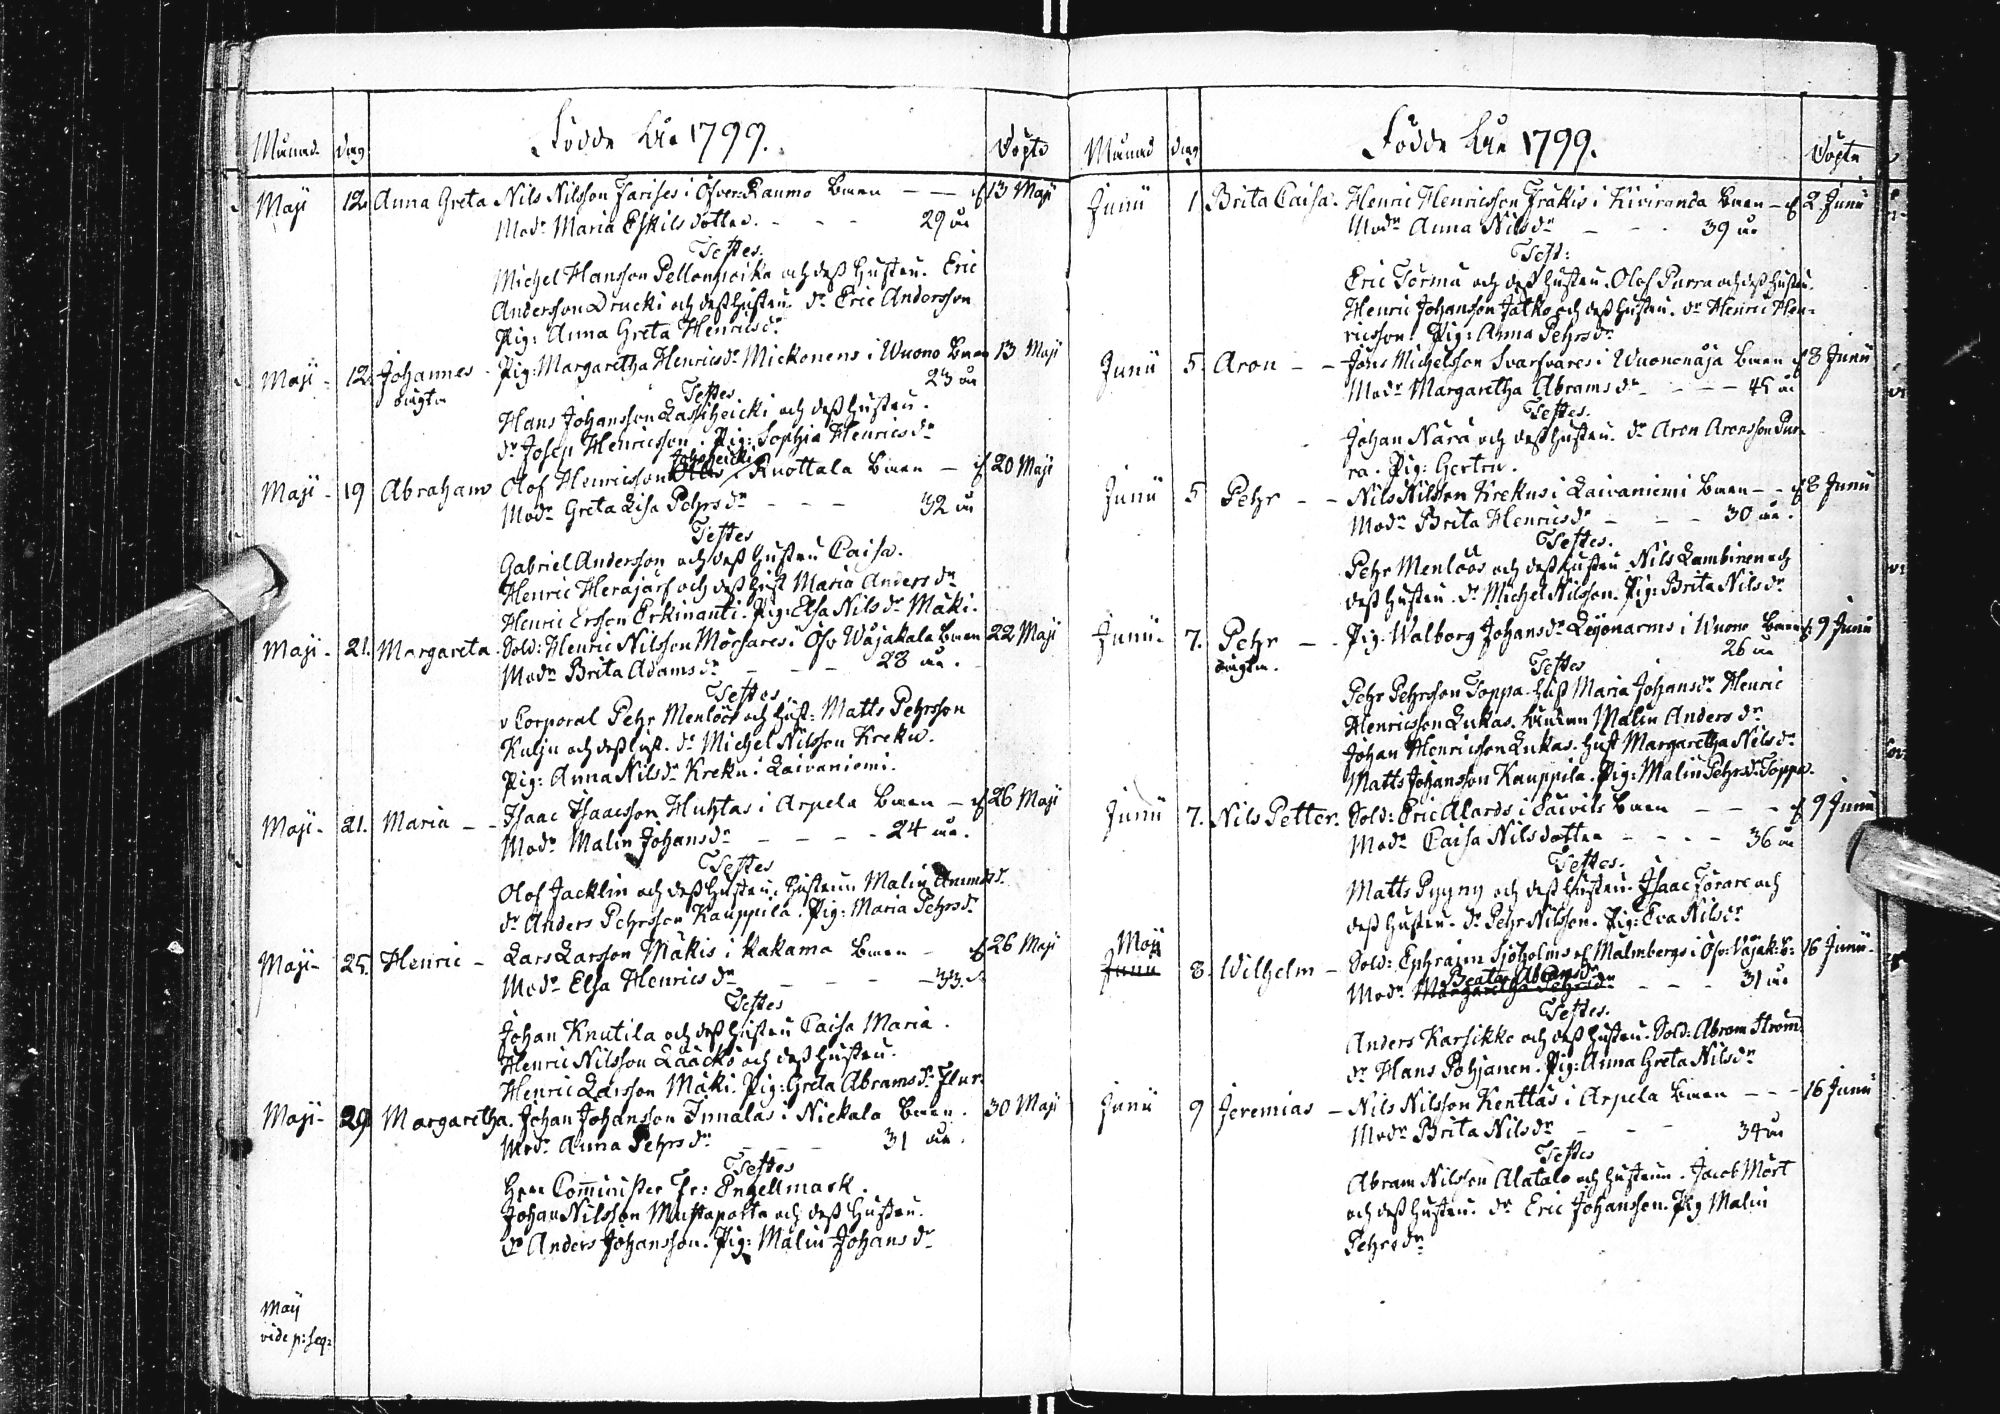 Födde åhr 1799.
Månad. Dag Döpte
Maji 12. Anna Greta Nils Nilsson Farises i Öfver Raumo Barn — — 13 Maji
Modr Maria Eskilsdotter. - - - 29 år
Testes.
Michel Hansson Pellonpoika och dess hustru. Eric
Andersson Drucki och dess hustru. dr Eric Andersson
Pig: Anna Greta Henricsdr
Maji - 12. Johannes - Pig: Margaretha Henricsdr Mickonens i Wuono Barn 13 Maji
oägta 23 år
Testes
Hans Johansson Lassiheicki och dess hustru.
dr Josep Henricsson. Pig: Sophia Henricsdr
Maji - 19 Abraham Olof Henricsson Knottala Barn — 20 Maji
Modr Greta Lisa Pehrsdr - - - 32 år
Testes
Gabriel Andersson och dess hustru Caisa.
Henric Herajärf och dess hust Maria Andersdr
Henric Ersson Erkinanti. Pig: Elsa Nilsdr Mäki.
Maji - 21. Margareta. Sold: Henric Nilsson Mörsares i Öfv Wäjakala Barn 22 Maji
Modr Brita Adamsdr - - - 28 år.
Testes
v Corporal Pehr Menlöös och hust: Matts Pehrsson
Kulju och dess hust. dr Michel Nilsson Kreku.
Pig: Anna Nilsdr Kreku i Laivaniemi.
Maji - 21. Maria - - Isaac Isaacsson Huhtas i Arpela Barn — 26 Maji
Modr Malin Johansdr - - - - 24 år.
Testes
Olof Jacklin och dess hustru. hustrun Malin
dr Anders Pehrsson Kauppila. Pig: Maria Pehrsdr
Maji - 25. Henric - Lars Larsson Mäkis i Kakama Barn - 26 Maji
Modr Elsa Henricsdr - - - - 33.
Testes
Johan Knutila och dess hustru Caisa Maria.
Henric Nilsson Laacko och dess hustru.
Henric Larsson Mäki. Pig: Greta Abramsdr
Maji - 29. Margaretha. Johan Johansson Innalas i Nickala Barn. 30 Maji
Modr Anna Pehrsdr - - - 31 år.
Testes
Herr Comminister Fr: Engellmark.
Johan Nilsson Mustaparta och dess hustru.
dr Anders Johansson. Pig: Malin Johansdr
Maij
vide p: seq:
Födde åhr 1799.
Månad Dag Döpte
Junii 1 Brita Caisa. Henric Henricsson Frakis i Kiviranda Barn — 2 Junii
Modr Anna Nilsdr - - - 39 år
Test:
Eric Törmä och dess hustru. Olof Purra och dess hustru.
Henric Johansson Jatko och dess hustru. dr Henric Hen-
ricsson. Pig: Anna Pehrsdr
Junii 5 Aron - - Jöns Michelsson Svarfvares i Wuononåja Barn 8 Junii
Modr Margaretha Abramsdr - - - 45 år
Testes.
Johan Nara och dess hustru. dr Aron Aronsson Pur-
ra. Pig: Gertru.
Junii 5 Pehr - - Nils Nilsson Krekus i Laivaniemi Barn - - 8 Junii
Modr Brita Henricsdr - - - 30 år.
Testes.
Pehr Menlöös och dess hustru. Nils Lambinen och
dess hustru. dr Michel Nilsson. Pig: Brita Nilsdr
Junii - 7. Pehr - - Pig: Walborg Johansdr Leijonarms i Wuono Barn 9 Junii
oägta. 26 år
Testes
Pehr Pehrsson Toppa. hust Maria Johansdr Henric
Henricsson Lukas. Malin Andersdr
Johan Henricsson Lukas. hust Margaretha Nilsdr
Matts Johansson Kauppila. Pig: Malin Pehrsdr Toppa.
Junii 7. Nils Petter. Sold: Eric Alards i Säivils Barn - - - 9 Junii
Modr Caisa Nilsdotter - - - - 36 år
Testes.
Matts Pygny och dess hustru. Isaac Förare och
dess hustru. dr Pehr Nilsson. Pig: Eva Nilsdr
Maij
Junii 8. Wilhelm - Sold: Ephraim Sjöholms Malmbergs i Öfv: Wäjak: B: 16 Junii
Beata Abramsdr
Modr Margaretha Pehrsdr - - - 31 år
Testes.
Anders Karsikko och dess hustru. Sold: Abram Ström.
dr Hans Pohjanen. Pig: Anna Greta Nilsdr
Junii 9 Jeremias - Nils Nilsson Kenttäs i Arpela Barn - - 16 Junii
Modr Brita Nilsdr - - - 34 år
Testes
Abram Nilsson Alatalo och hustrun. Jacob Mört
och dess hustru. dr Eric Johansson. Pig Malin
Pehrsdr